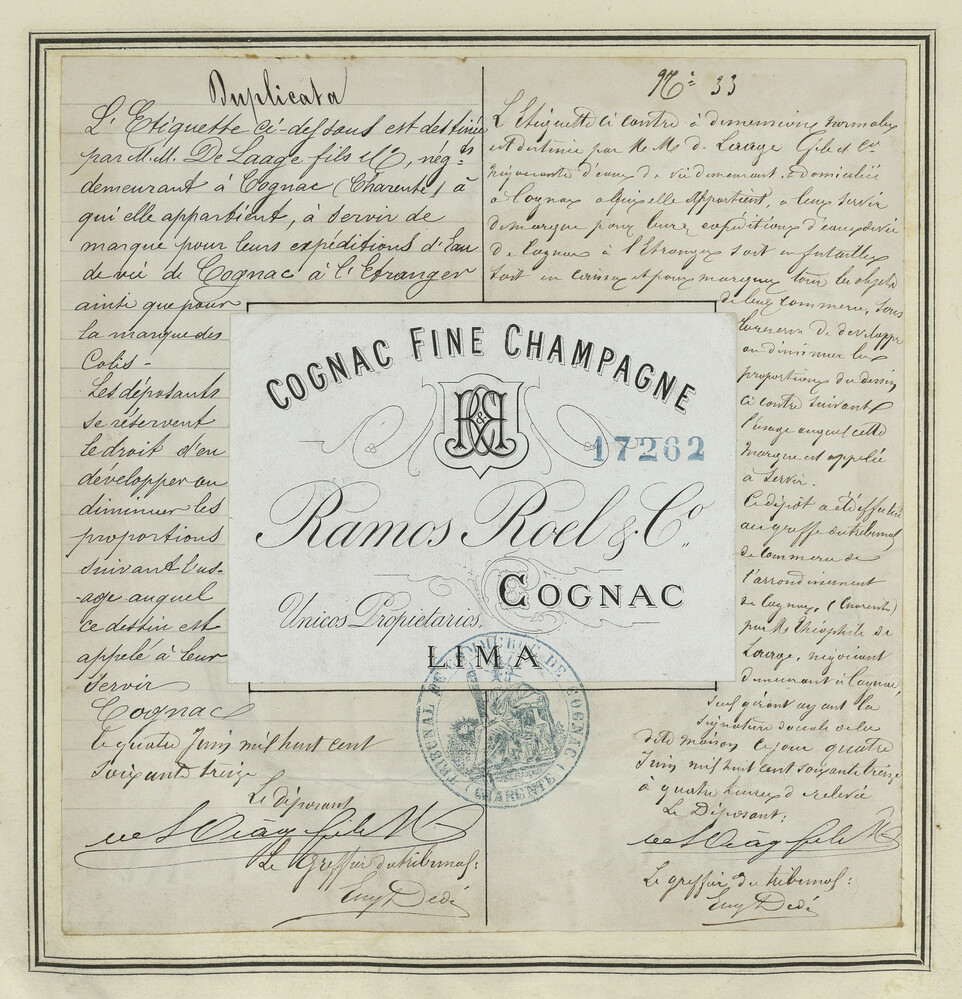 Duplicata
L'Etiquette ci-dessous est destinée
par M.M. De Laage fils & Cº, négts
demeurant à Cognac (Charente) à
qui elle appartient, à servir de
marque pour leurs expéditions d'Eau
de vie de Cognac à l'Etranger
ainsi que pour
la marque des
Colis -
Les déposants
se réservent
le droit d'en
développer ou
diminuer les
proportions
suivant l'us-
-age auquel
ce dessin est
appelé à leur
servir
Cognac
le quatre Juin mil huit cent
soixante treize
Le Déposant
Le Greffier du tribunal:
Eug Dedé
Nº 33
L'Etiquette ci contre à dimensions normales
est destinée par M Ms de Laage fils et Cie
négociants d'eaux de vie demeurant & domiciliés
à Cognac à qui elle appartient, à leur servir
de marque pour leurs expéditions d'eaux de vie
de Cognac à l'Etranger soit en futailles
soit en caisses et pour marquer tous les objets
de leur commerce, sous
la réserve de développer
ou diminuer les
proportions du dessin
ci contre suivant
l'usage auquel cette
marque est appelée
à servir.
Ce dépôt a été effectué
au greffe du tribunal
de Commerce de
l'arrondissement
de Cognac, (Charente)
par Mr Théophile de
Laage, négociant
demeurant à Cognac,
seul gérant ayant la
signature sociale de la
dite maison ce jour quatre
Juin mil huit cent soixante treize
à quatre heures de relevée
Le Déposant:
Le greffier du tribunal:
Eug Dedé
COGNAC FINE CHAMPAGNE
R&R
17262
Ramos Roel & Cº.
COGNAC
Unicos Propietarios,
LIMA
TRIBUNAL DE COMMERCE DE COGNAC
(CHARENTE)